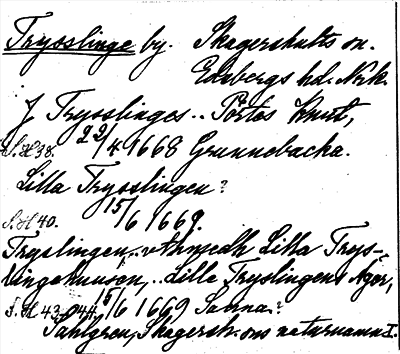 Trysslinge by. Skagershults sn.
Edsbergs hd. Närk.
J Trysslinges .. Pörtes Knut,
S.H 38. 22/4 1668 Grunnebacka.
Lilla Trysslingen?
S.H 40. 15/6 1669.
Tryslingen, .. vthmedh Lilla Trys-
linge .. Lille Tryslingens Ägor,
S.H 43, 044, 15/6 1669 Sanna?
Sahlgren, Skagersh. sns naturnamn I.